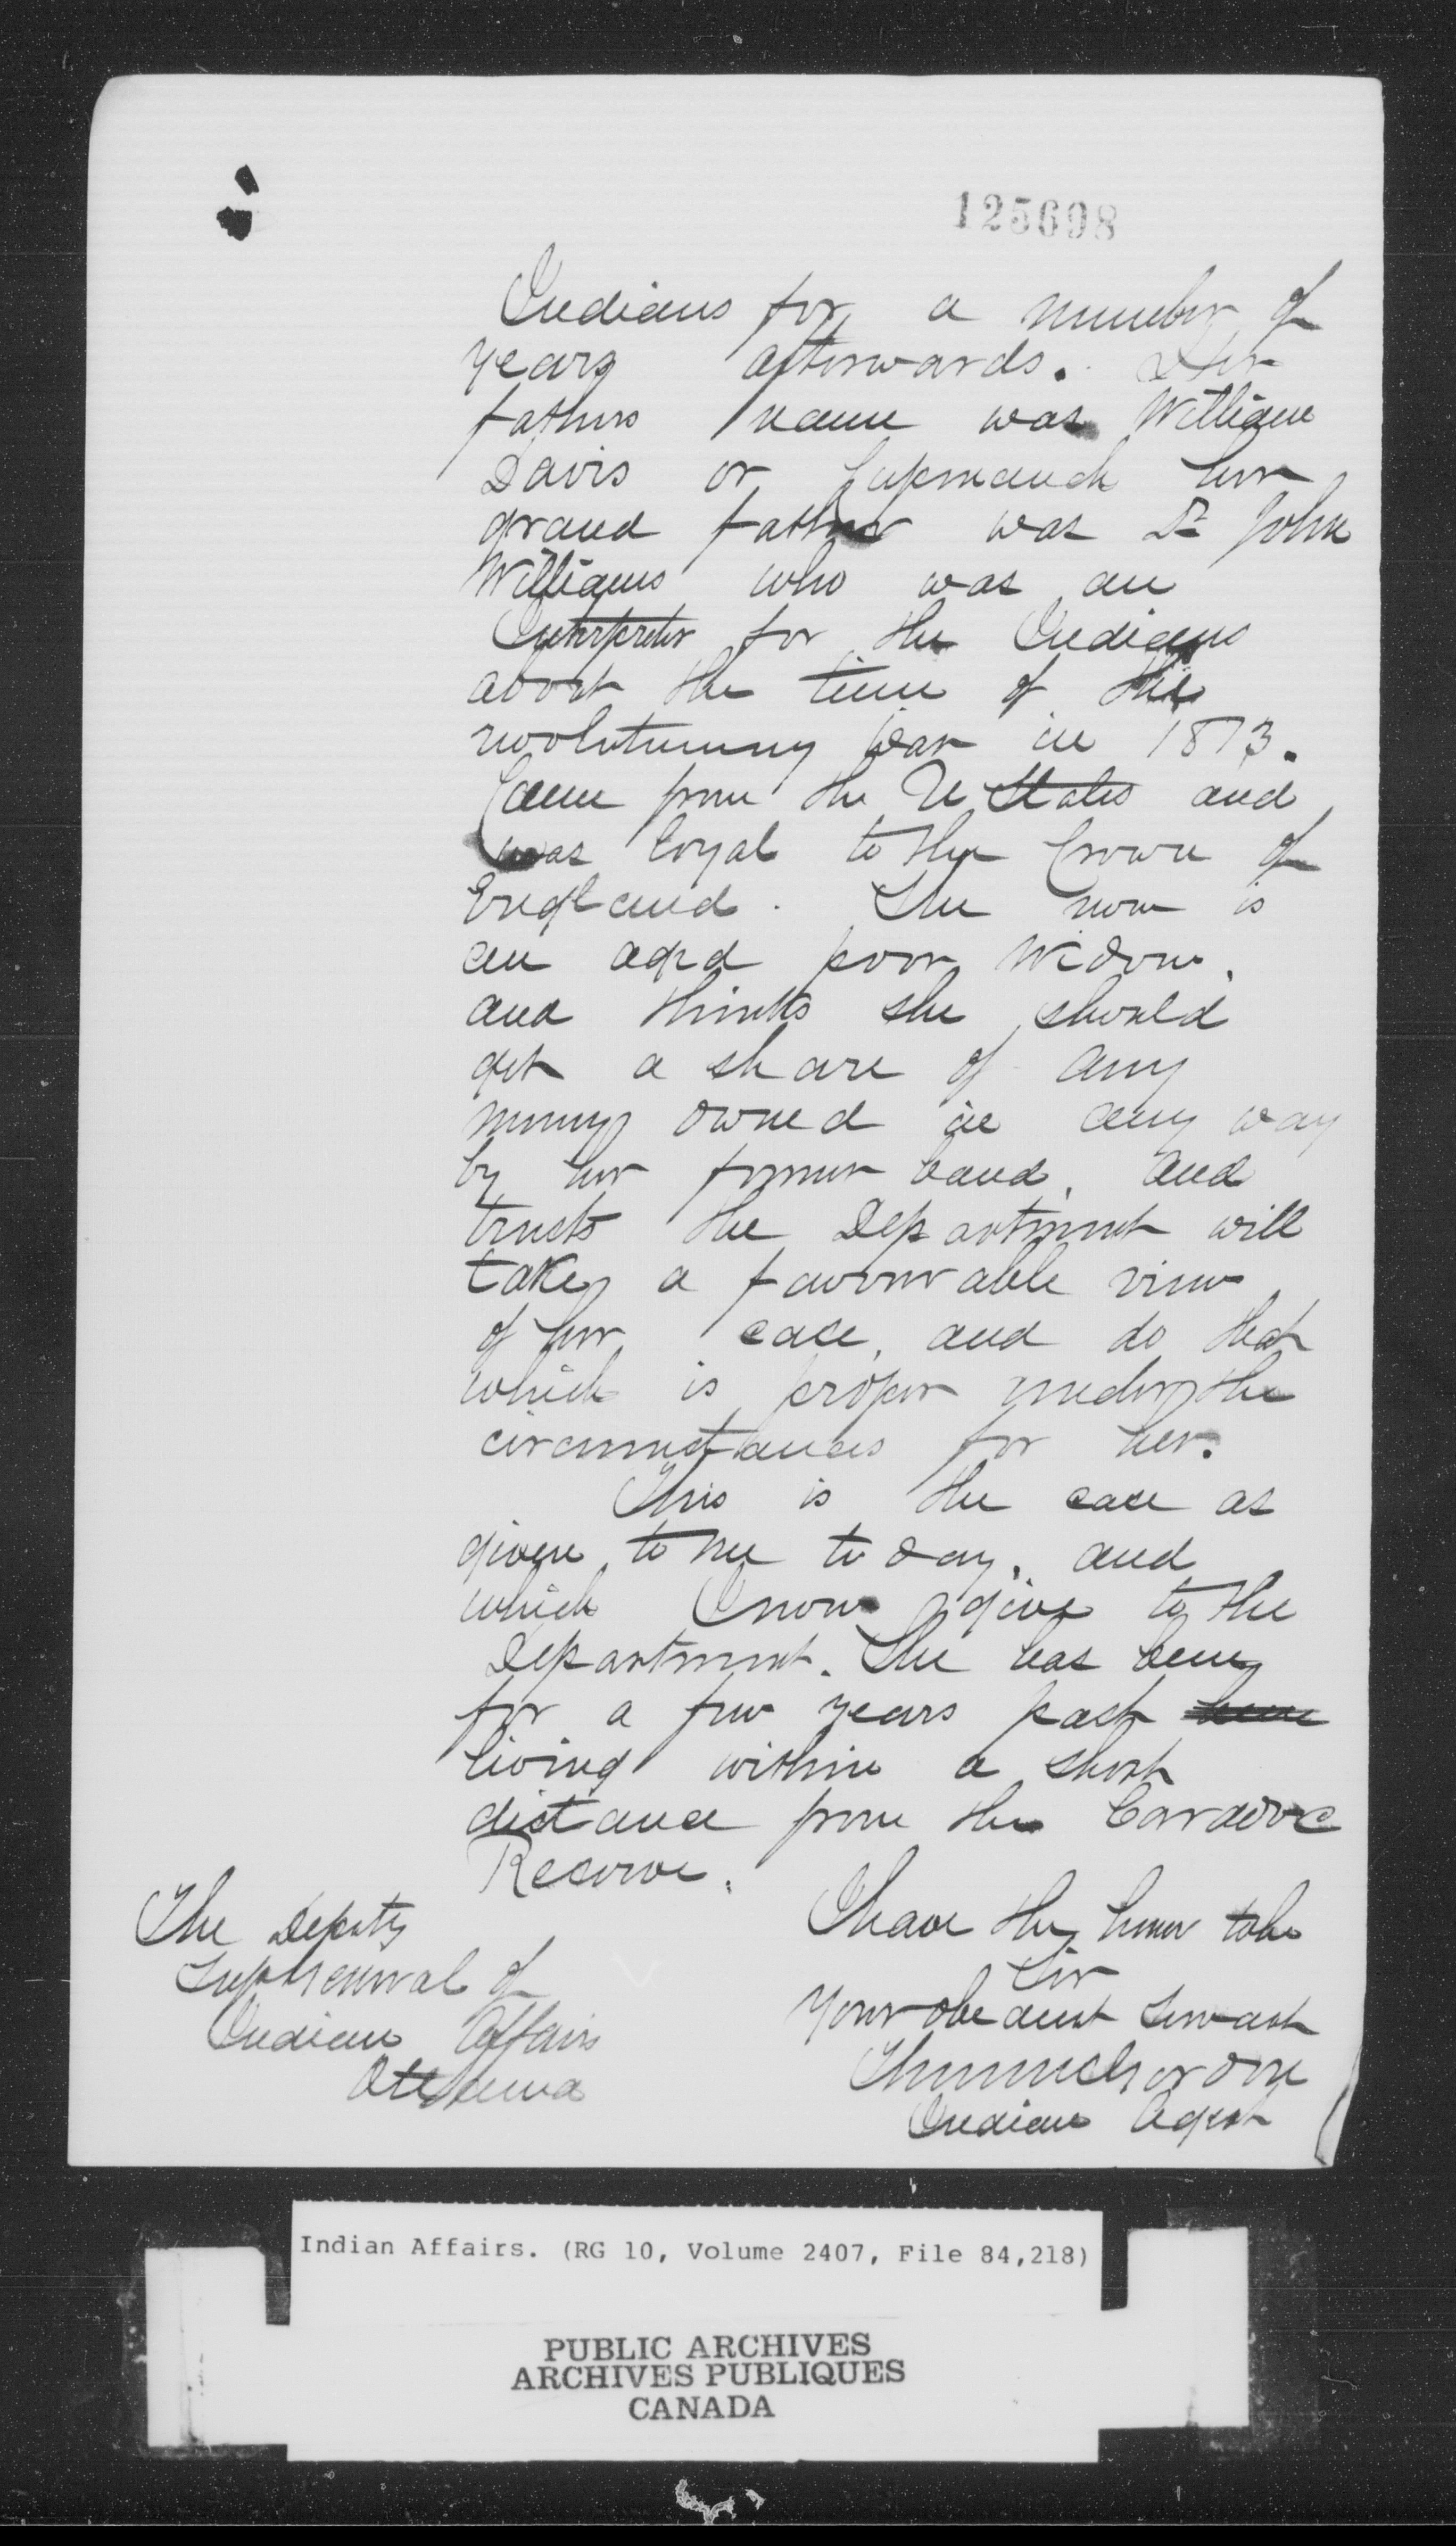 125698
Indians for a number of
years afterwards. Her
fathers name was William
Davis or her
grand father was Dr John
Williams who was an
Interpreter for the Indians
about the time of the
revolutionary war in 1813.
Came from the U States and
was loyal to the Crown of
England. She now is
an aged poor widow,
and thinks she should
get a share of any
money owned in any way
by her former band, and
trusts the Department will
take a favourable view
of her case, and do that
which is proper under the
circumstances for her.
This is the case as
given to me to day, and
which I now give to the
Department. She has been
for a few years past
living within a short
distance from the Caradoc
Reserve.
I have the honor to be
Sir
Your obedient Servant
Indian Agent
The Deputy
Supt General of
Indian Affairs
Ottawa
Indian Affairs. (RG 10, Volume 2407, File 84,218)
PUBLIC ARCHIVES
ARCHIVES PUBLIQUES
CANADA